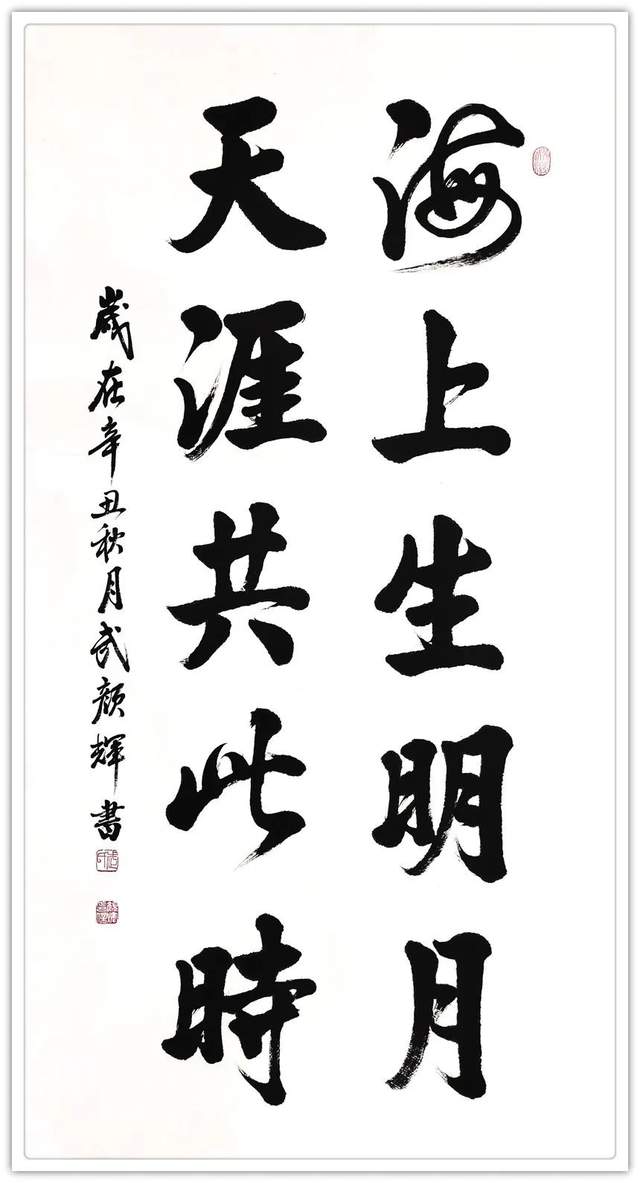 海上生明月
天涯共此時
歲在辛丑秋月武顔輝書